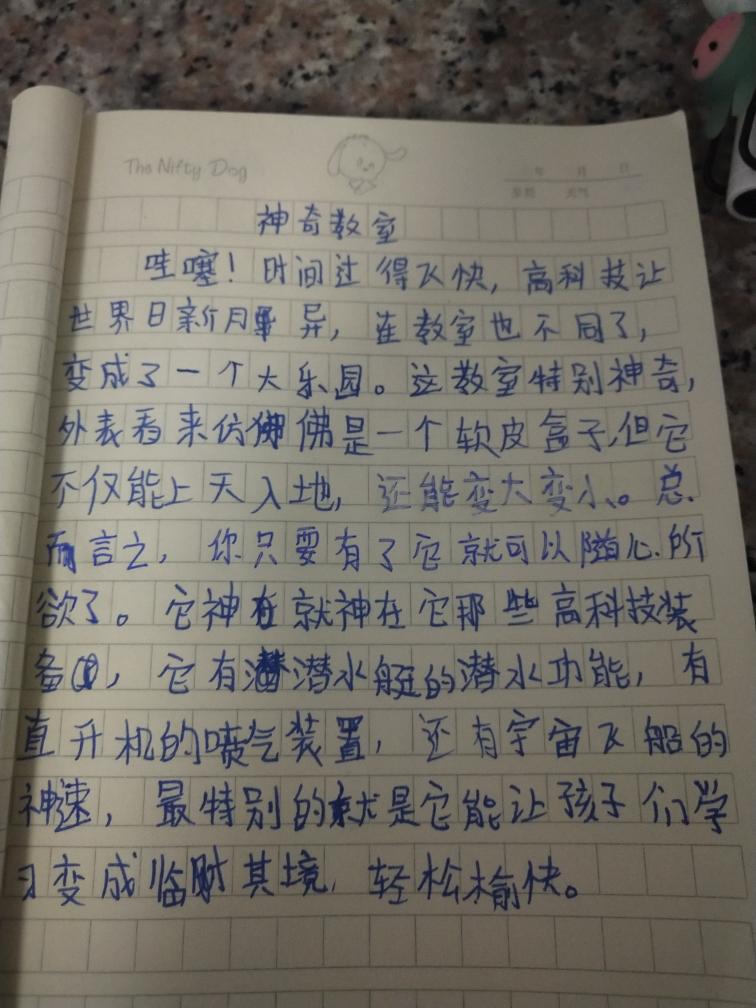 The Nifty Dog
年 月 日
星期 天气
神奇教室
哇噻！时间过得飞快，高科技让
世界日新月异，在教室也不同了，
变成了一个大乐园。这教室特别神奇，
外表看来仿佛是一个软皮盒子，但它
不仅能上天入地，还能变大变小。总
而言之，你只要有了它就可以随心所
欲了。它神在就神在它那些高科技装
备，它有潜水艇的潜水功能，有
直升机的喷气装置，还有宇宙飞船的
神速，最特别的就是它能让孩子们学
习变成临其境，轻松愉快。